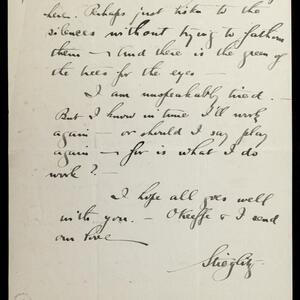 here. Perhaps just listen to the
silences without trying to fathom
them — And there is the green of
the trees for the eyes —
I am unspeakably tired. —
But I know in time I'll work
again — or should I say play
again — for is what I do
work? —
I hope all goes well
with you. — O'Keeffe & I send
our love
Stieglitz.